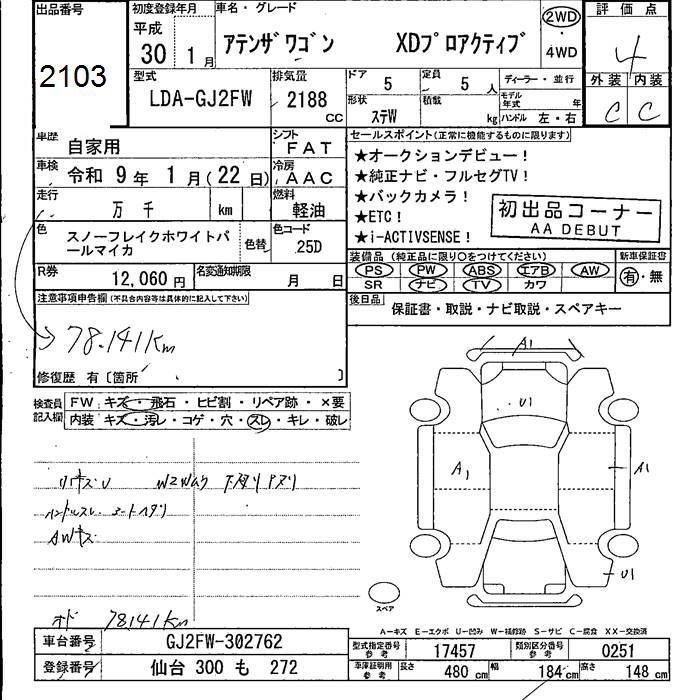 出品番号
2103
初度登録年月
平成
30年 1月
車名・グレード
アテンザワゴン XDプロアクティブ
2WD
・
4WD
評価点
4
外装 内装
C C
型式
LDA-GJ2FW
排気量
2188 CC
ドア 5
定員 5 人
ディーラー・並行
形状 ステW
積載 kg
モデル年式 年
ハンドル 左・右
車歴 自家用
シフト FAT
車検 令和 9年 1月(22日)
冷房 AAC
走行 万 千 km
燃料 軽油
色 スノーフレイクホワイトパールマイカ
色替
色コード 25D
R券 12,060円
名変通知期限 月 日
セールスポイント(正常に機能するものに限ります)
★オークションデビュー!
★純正ナビ・フルセグTV!
★バックカメラ!
★ETC!
★i-ACTIVSENSE!
初出品コーナー
AA DEBUT
装備品 (純正品に限り○をつけてください)
PS PW ABS エアB AW
SR ナビ TV カワ
新車保証書
有・無
後日品
保証書・取説・ナビ取説・スペアキー
注意事項申告欄(不具合内容等は具体的に記入して下さい)
78.141Km
修復歴 有〔箇所 〕
検査員記入欄
FW キズ・飛石・ヒビ割・リペア跡・×要
内装 キズ・汚レ・コゲ・穴・スレ・キレ・破レ
AWキズ
オド 78141km
A1
U1
A1
A1
U1
スペア
A-キズ E-エクボ U-凹み W-補修跡 S-サビ C-腐食 XX-交換済
車台番号 GJ2FW-302762
登録番号 仙台 300 も 272
型式指定番号 参考 17457
類別区分番号 参考 0251
車庫証明用 参考 長さ 480cm 幅 184cm 高さ 148cm